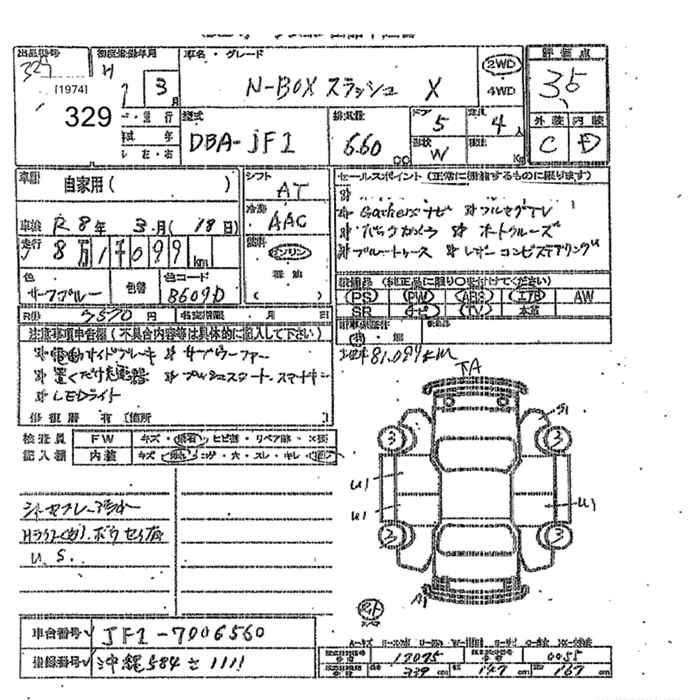 出品番号 初度登録年月 車名・グレード 評価点
329 H 3月 N-BOX スラッシュ X 2WD 4WD 3.5
[1974]
329
型式 DBA-JF1 排気量 660 cc ドア 5 形状 W 定員 4人 外装 C 内装 D
車歴 自家用 ( ) シフト AT セールスポイント (正常に機能するものに限ります)
Gathersナビ フルセグTV
車検 R8年 3月(18日) 冷房 AAC バックカメラ オートクルーズ
走行 8万1千099km 燃料 ガソリン ブルートゥース レザーコンビステアリング
軽油
色 サーフブルー 色替 色コード B609D
装備品 (純正品に限り○を付けてください)
PS PW ABS エアB AW
SR ナビ TV 本革
R預 7570円 名変期限 月 日
注意事項申告欄 (不具合内容等は具体的に記入して下さい) 有・無
81,099km
電動サイドブレーキ サブウーファー
置くだけ充電器 プッシュスタート.スマートキー
LEDライト
修復歴 有 [箇所 ]
検査員 FW キズ・飛石・ヒビ割・リペア跡・X要
記入欄 内装 キズ コゲ・穴・スレ・キレ
TA
A1
3 3
U1
U1 U1
2 3
A1
U.S.
車台番号 JF1-7006560
登録番号 沖縄584さ1111
12075 0055
339cm 147cm 167cm